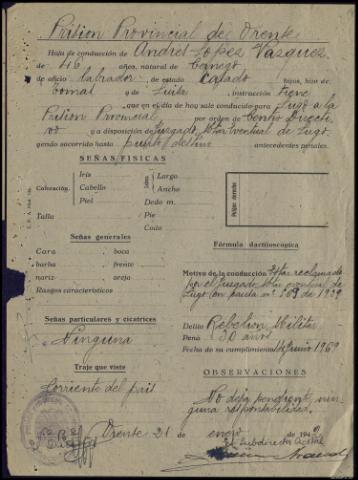 Prision Provincial de Orense
Hoja de conducción de Andres Lopez Vazquez
de 46 años, natural de
de oficio labrador de estado Casado hijos, hijo de
y de Luisa, instrucción tiene
que en el día de hoy sale conducido para Lugo a la
Prision Provincial por orden de Centro Directi
vo y a disposición de Juzgado Mtar eventual de Lugo,
yendo socorrido hasta punto destino antecedentes penales.
SEÑAS FISICAS
Coloración. Iris
Cabello
Piel
Largo
Ancho
Dedo m.
Talla
Pie
Codo
Pulgar derecho
Señas generales
Cara boca
barba frente
nariz oreja
Rasgos característicos
Fórmula dactiloscópica
Motivo de la conducción Estar reclamado
por el juzgado Mtar eventual de
Lugo en causa nº 569 de 1939
Señas particulares y cicatrices
Ninguna
Delito Rebelion Militar
Pena 30 años
Fecha de su cumplimiento 14 Junio 1969
Traje que viste
Corriente del pais
OBSERVACIONES
No deja pendiente nin
guna responsabilidad.
Orense 21 de enero de 194
El Subdirector Acctal